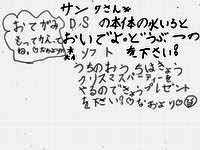 サンタさんへ
DSの本体の水いろと
おいでよ。どうぶつの
森 ソフト を下さい。
うちのおうちはきょう
クリスマスパーティーを
やるのできょうプレゼント
を下さい。なおより♡
おてがみ
もってかえって
ね。